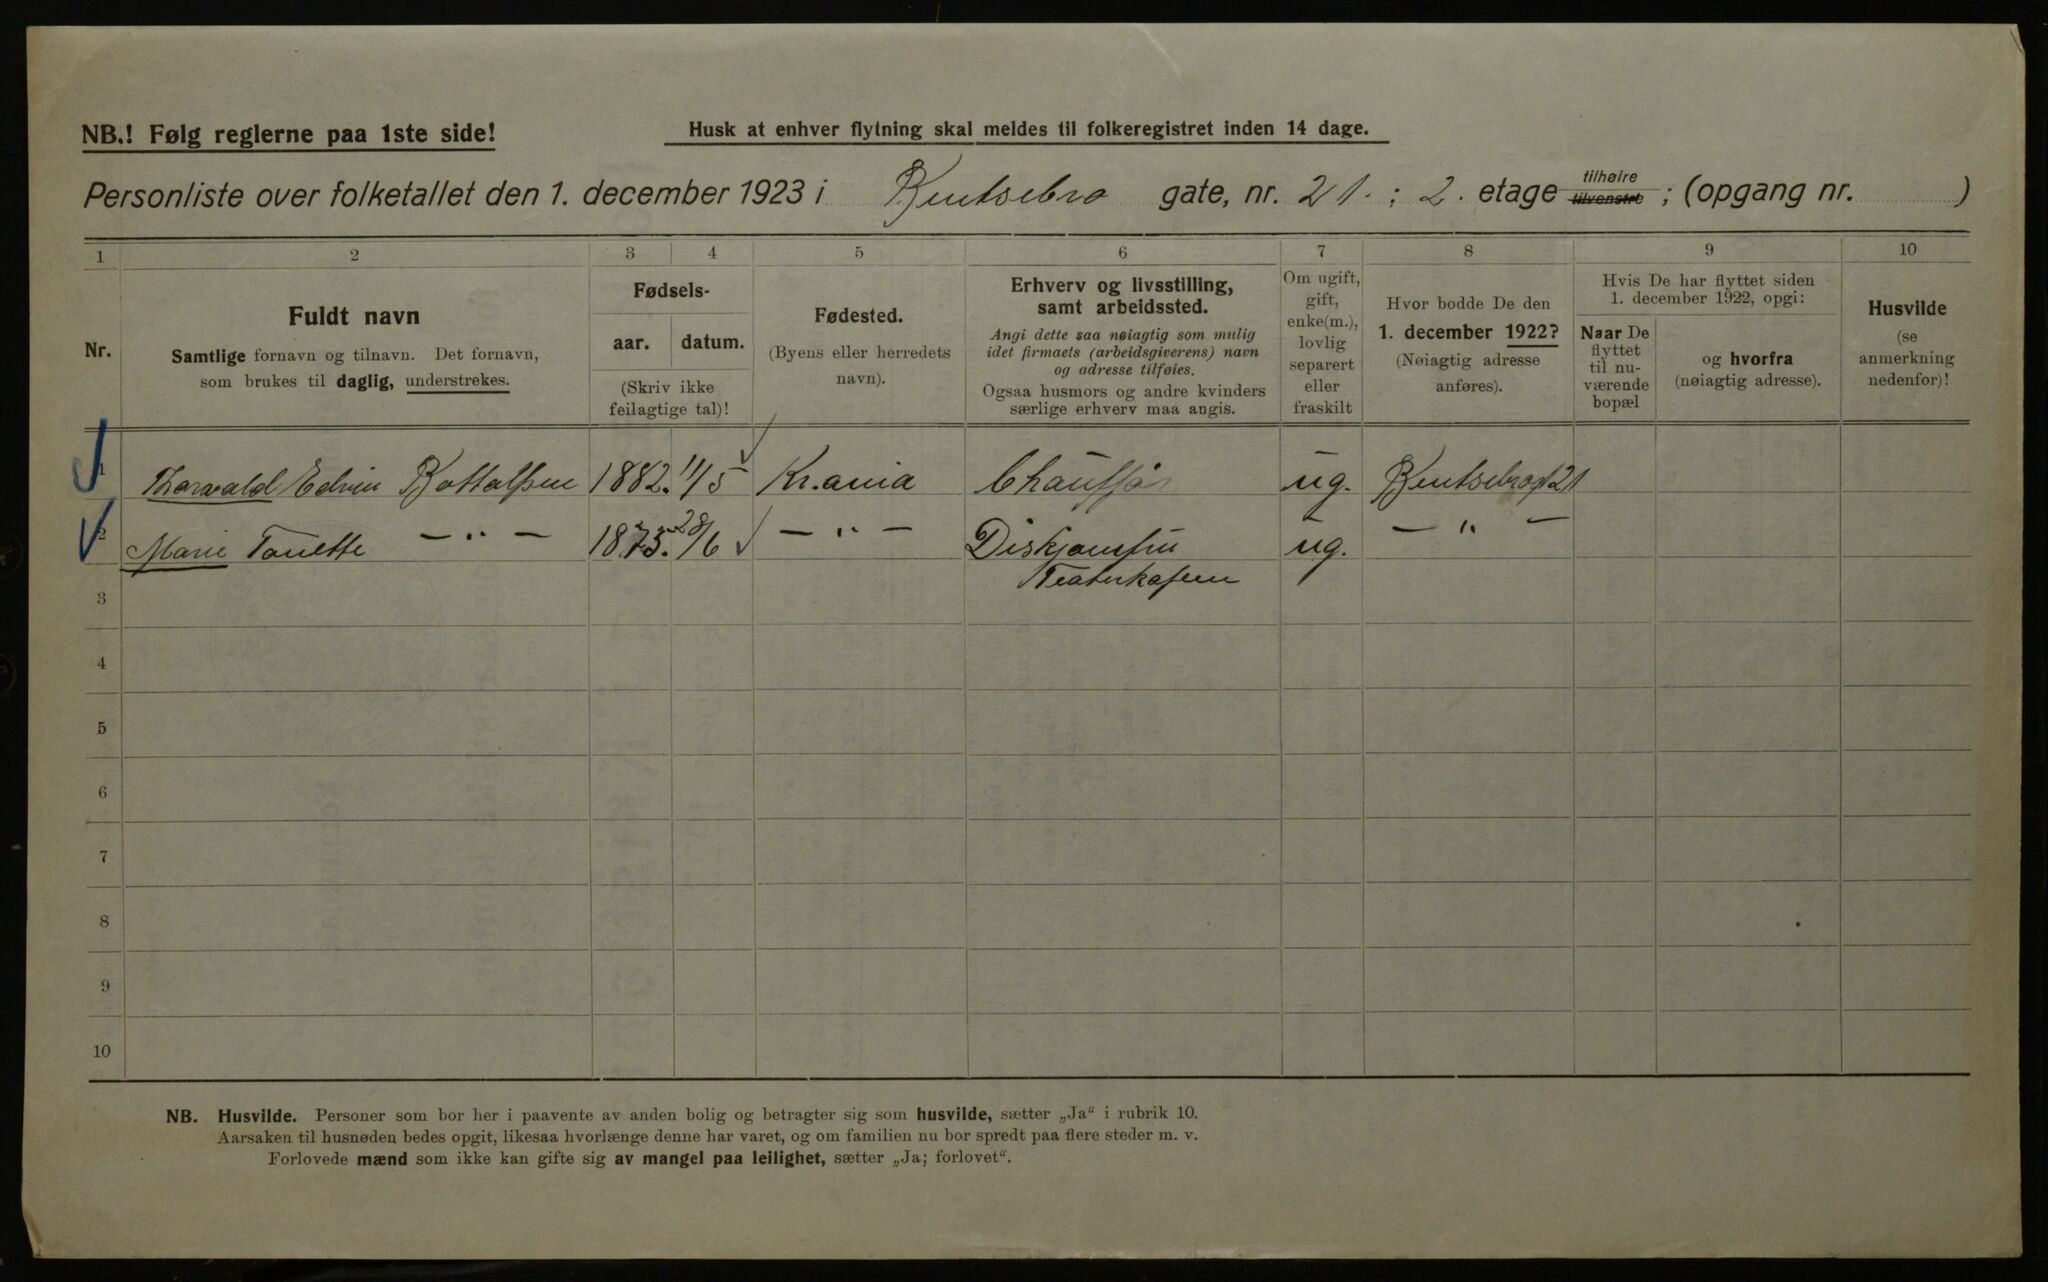 NB.! Følg reglerne paa 1ste side!
Husk at enhver flytning skal meldes til folkeregistret inden 14 dage.
Personliste over folketallet den 1. december 1923 i Bentsebro gate, nr. 21. ; 2. etage tilhøire tilvenstre ; (opgang nr. )
1 2 3 4 5 6 7 8 9 10
Nr.
Fuldt navn
Samtlige fornavn og tilnavn. Det fornavn,
som brukes til daglig, understrekes.
Fødsels-
aar. datum.
(Skriv ikke
feilagtige tal)!
Fødested.
(Byens eller herredets
navn).
Erhverv og livsstilling,
samt arbeidssted.
Angi dette saa nøiagtig som mulig
idet firmaets (arbeidsgiverens) navn
og adresse tilføies.
Ogsaa husmors og andre kvinders
særlige erhverv maa angis.
Om ugift,
gift,
enke(m.),
lovlig
separert
eller
fraskilt
Hvor bodde De den
1. december 1922?
(Nøiagtig adresse
anføres).
Hvis De har flyttet siden
1. december 1922, opgi:
Naar De
flyttet
til nu-
værende
bopæl
og hvorfra
(nøiagtig adresse).
Husvilde
(se
anmerkning
nedenfor)!
1 Thorvald Edvin Bottolfsen 1882. 11/5 Kr.ania Chauffør ug. Bentsebrogt 21
2 Marie Tonette — „ — 1873. 28/6 — „ — ug. — „ —
Teaterkafeen
3
4
5
6
7
8
9
10
NB. Husvilde. Personer som bor her i paavente av anden bolig og betragter sig som husvilde, sætter „Ja“ i rubrik 10.
Aarsaken til husnøden bedes opgit, likesaa hvorlænge denne har varet, og om familien nu bor spredt paa flere steder m. v.
Forlovede mænd som ikke kan gifte sig av mangel paa leilighet, sætter „Ja; forlovet“.